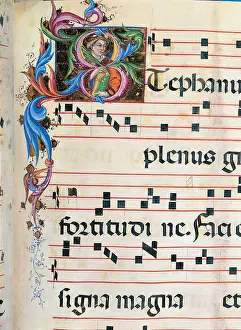 Stephanu
plenus g
fortitudi ne. Faci e
signa magna et